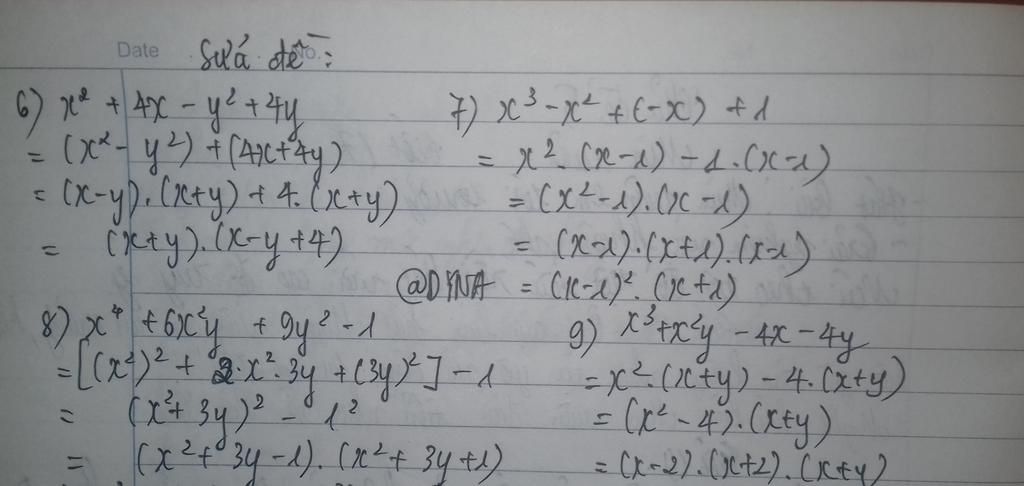 Date No.
Sửa đề:
6) x² + 4x - y² + 4y
= (x² - y²) + (4x + 4y)
= (x-y).(x+y) + 4.(x+y)
= (x+y).(x-y+4)
7) x³ - x² + (-x) + 1
= x².(x-1) - 1.(x-1)
= (x²-1).(x-1)
= (x-1).(x+1).(x-1)
@DYNA = (x-1)².(x+1)
8) x⁴ + 6x²y + 9y² - 1
= [(x²)² + 2.x².3y + (3y)²] - 1
= (x² + 3y)² - 1²
= (x² + 3y - 1).(x² + 3y + 1)
9) x³ + x²y - 4x - 4y
= x².(x+y) - 4.(x+y)
= (x² - 4).(x+y)
= (x-2).(x+2).(x+y)